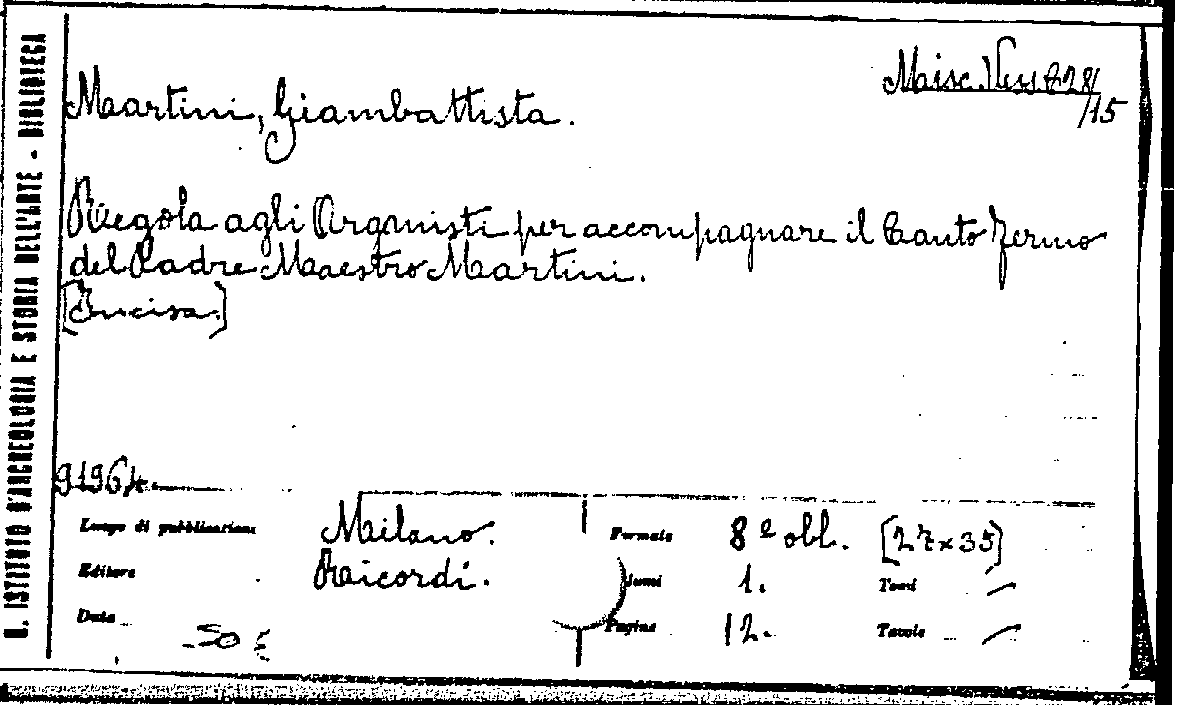 R. ISTITUTO D'ARCHEOLOGIA E STORIA DELL'ARTE - BIBLIOTECA
Misc. 828/
/15
Martini, Giambattista.
Regola agli Organisti per accompagnare il Canto Fermo
del Padre Maestro Martini.
[Incisa.]
91964
Luogo di pubblicazione Milano. Formato 8º obl. [27x35]
Editore Ricordi. Volumi 1. Tomi —
Data Pagine 12. Tavole —